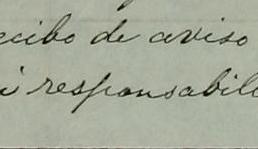 ecibo de aviso
i responsabili